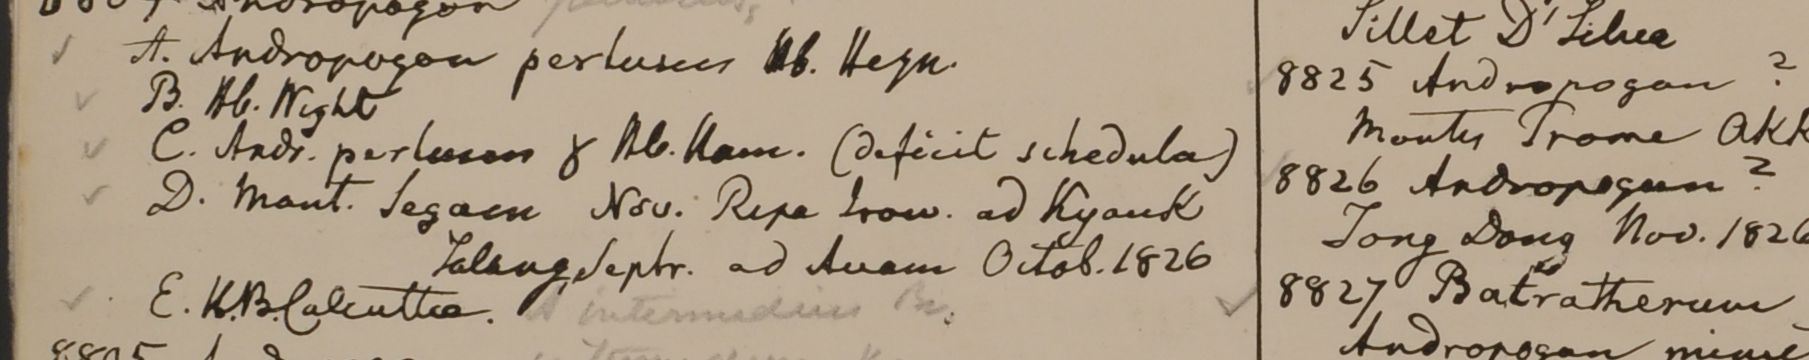 Andropogon
A. Andropogon pertusus Hb. Heyn.
B. Hb. Wight
C. Andr. pertusus γ Hb. Ham. (deficit schedula)
D. Mont. Segaen Nov. Ripa Irow. ad Kyouk
Talong, Septr. ad Avam Octob. 1826
E. H.B. Calcutta. A intermedius Br.
Andropogon
Sillet D'Silva
8825 Andropogon ?
Montis Prome
8826 Andropogon ?
Tong Dong Nov. 1826
8827 Batratherum
Andropogon